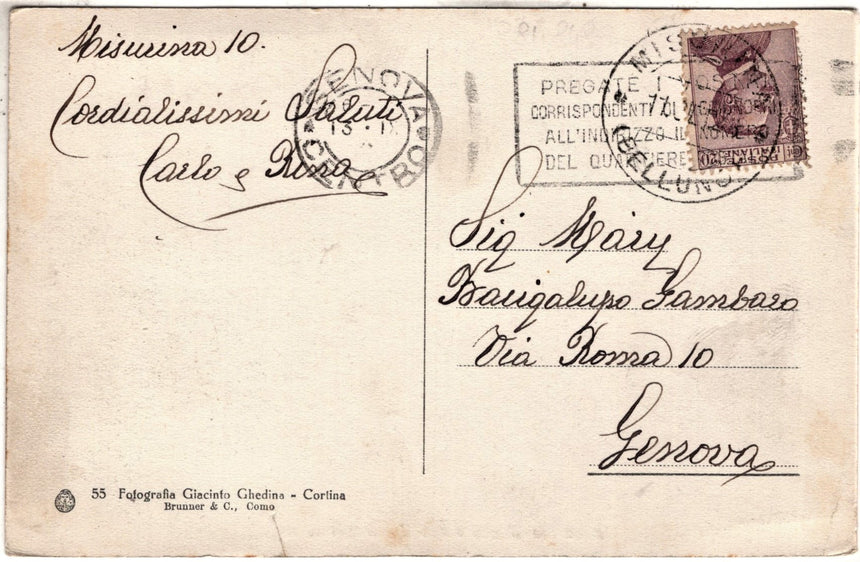 Misurina 10.
Cordialissimi Saluti
Carlo e Rina
GENOVA
CENTRO
PREGATE I
CORRISPONDENTI
ALL'INDIRIZZO IL NUMERO
DEL QUARTIERE
MISURINA
(BELLUNO
POSTE ITALIANE
C. 20
Sig Mary
Bacigalupo Gambaro
Via Roma 10
Genova
55 Fotografia Giacinto Ghedina - Cortina
Brunner & C., Como